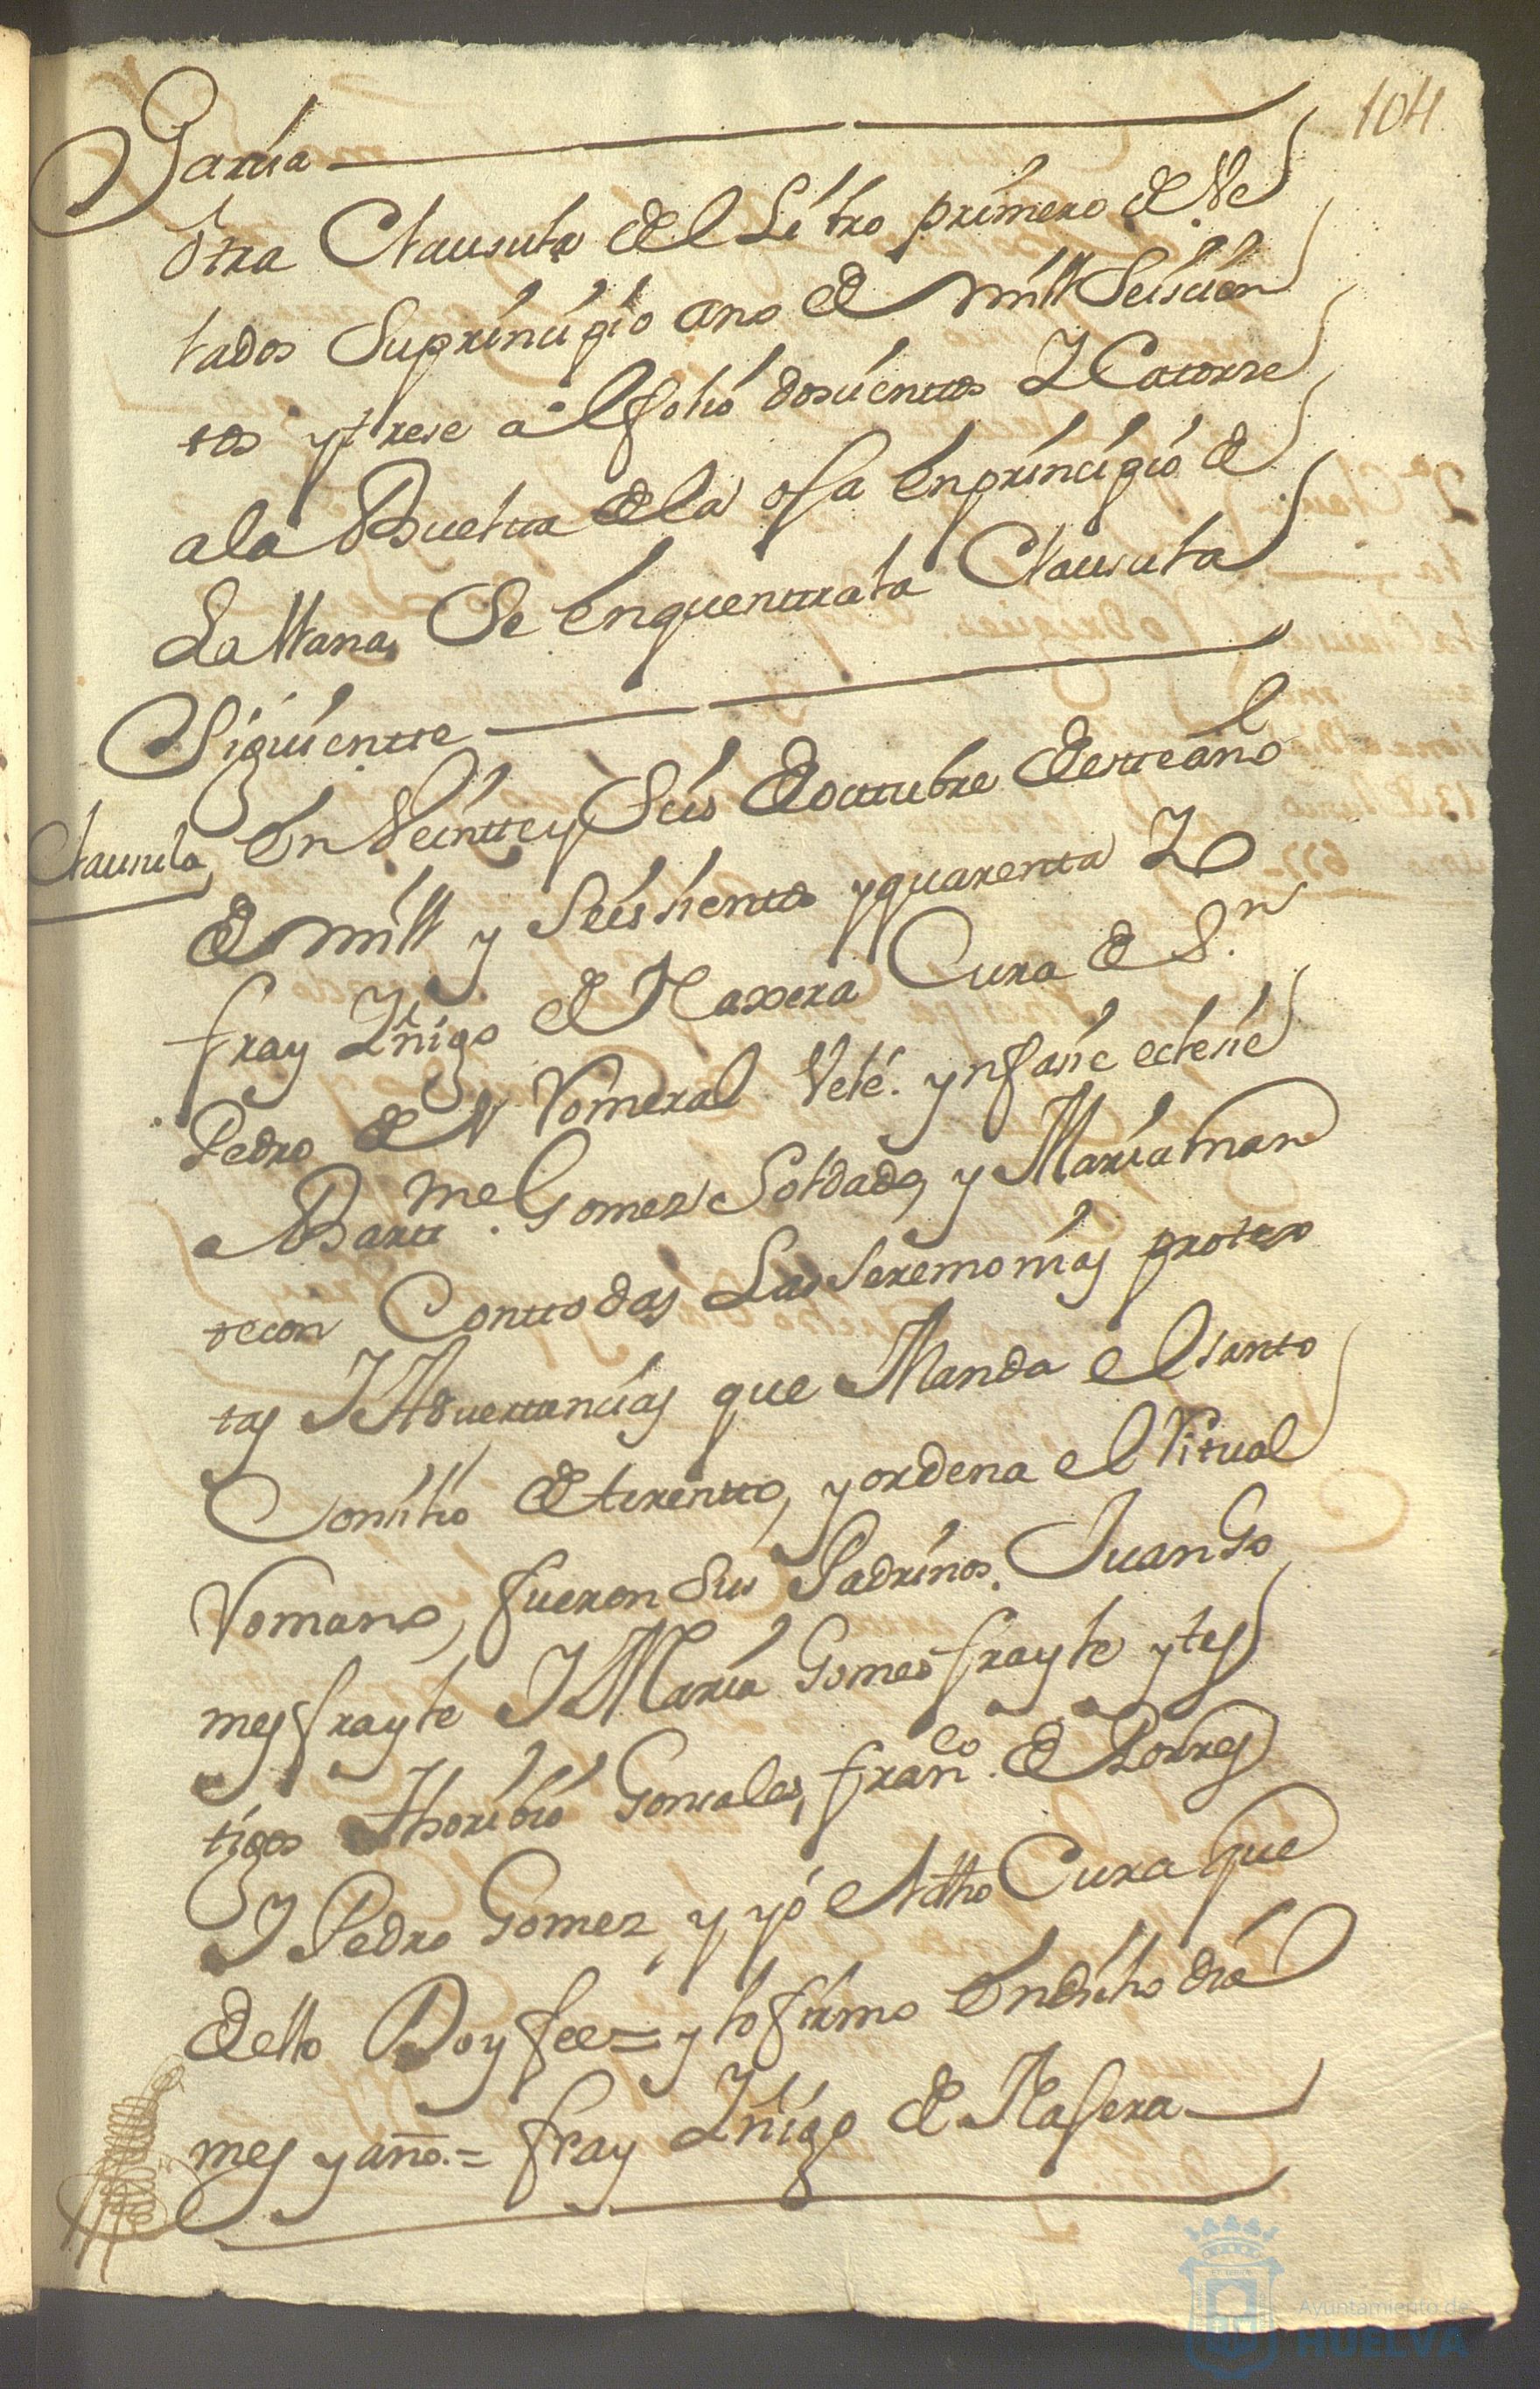 104
Garcia
Otra Clausula del Libro primero de Ve
lados Suprincipio ano de mill Seiscien
tos y trese al folio doscientos Y Catorse
ala Buelta dela osa Enprincipio de
La llana, Se Enquentrala Clausula
Siguiente
Clausula En Veinttey Seis de octubre desteaño
de mill y Seissientos yquarenta Yo
fray Yñigo de Naxera Cura de Sn.
Pedro de Romeral Velé. ynfasie eclesie
a Bartme. Gomez Soldado, y Maria man
secon Contodas Las Seremonias protes
tas Y Advertencias que Manda el santo
Consilio de trento, y ordena el Ritual
Romano, fueron Sus Padrinos. Juan Go
mes frayle Y Maria Gomes frayle y tes
tigos Thoribio Gonsales, Franco. de Porres
Y Pedro Gomez, y yo el dho Cura que
dello Doy fee= y lo firmo En dicho dia
mes y año.= fray Yñigo de Nasera
Ayuntamiento de
HUELVA